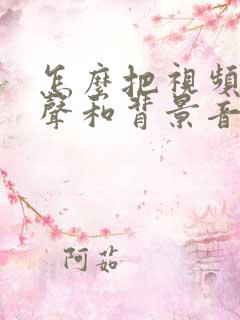 怎麼把視頻
聲和背景音
阿茹